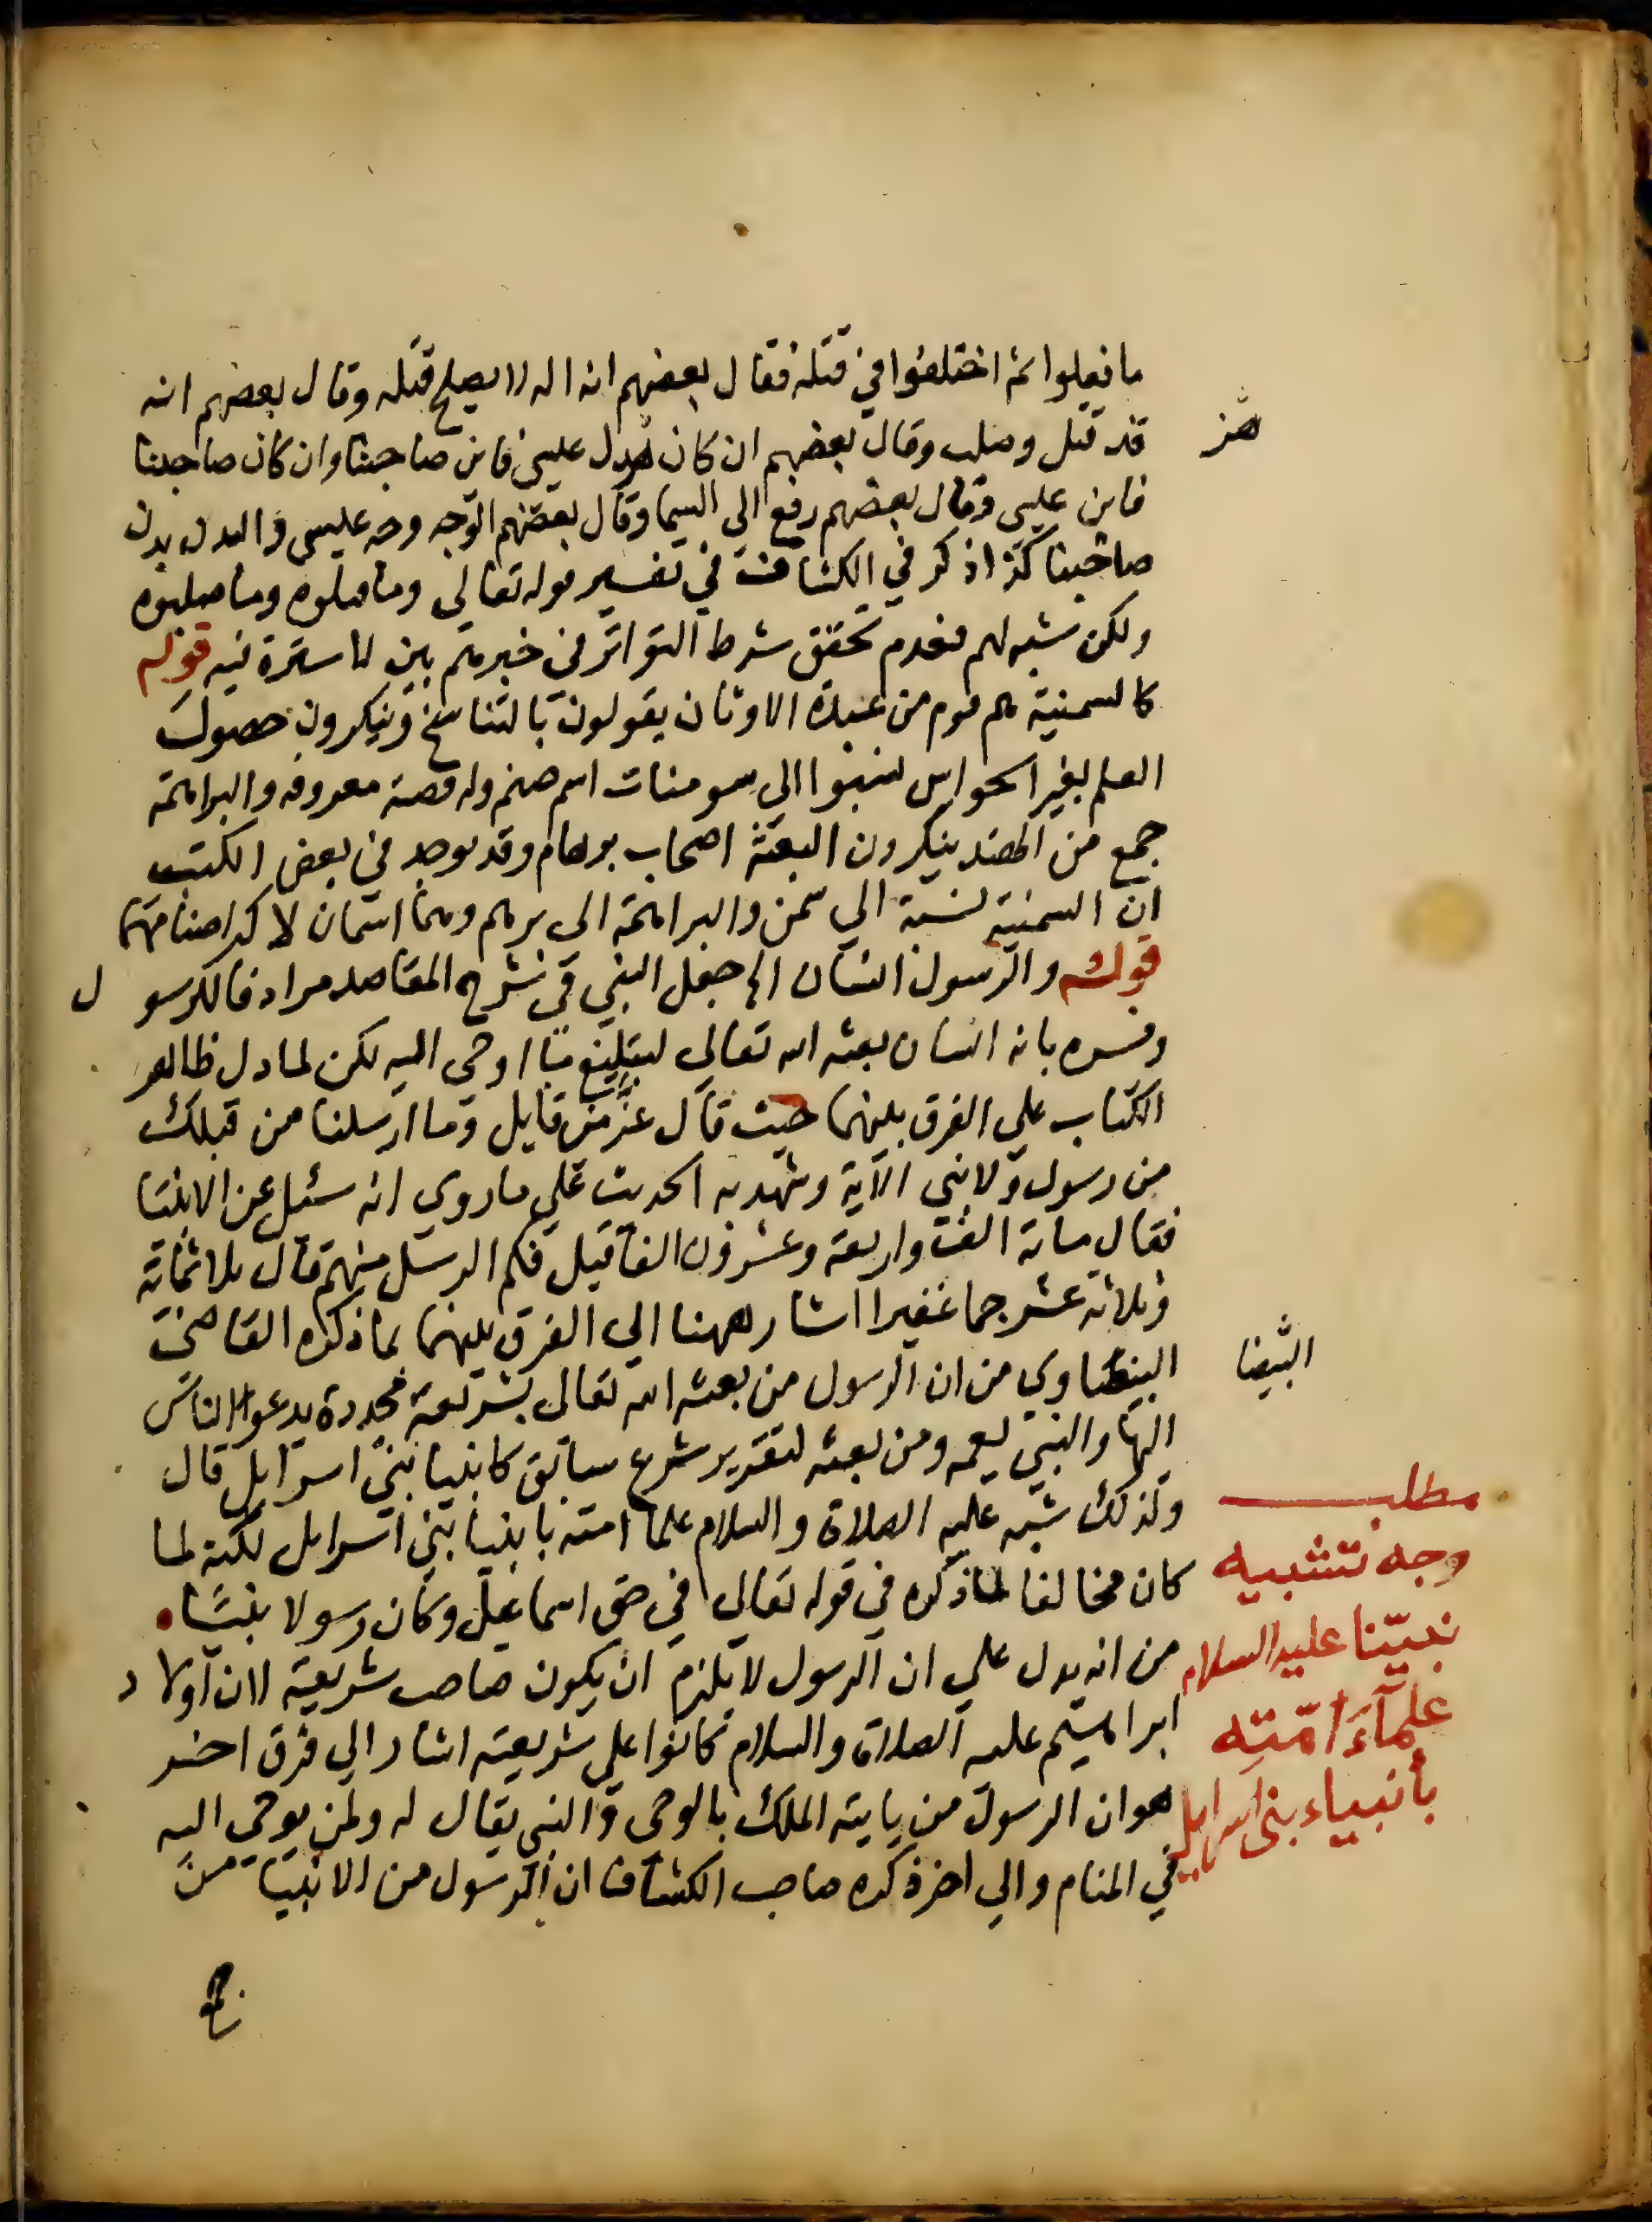 ما فعلوا ثم اختلفوا في قتله فقال بعضهم انه اله لا يصلح قتله وقال بعضهم انه
قد قتل وصلب وقال بعضهم ان كان هذا عيسى فاين صاحبنا وان كان صاحبنا
فاين عيسى وقال بعضهم رفع الى السما وقال بعضهم الوجه وجه عيسى والبدن بدن
صاحبنا كذا ذكر في الكشاف في تفسير قوله تعالى وما قتلوه وما صلبوه
ولكن شبه لهم فعدم تحقق شرط التواتر في خبرهم بين لا سترة فيه قوله
كالسمنية هم قوم من عبدة الاوثان يقولون بالتناسخ وينكرون حصول
العلم بغير الحواس نسبوا الى سومنات اسم صنم وله قصة معروفه والبراهمة
جمع من الهند ينكرون البعثة اصحاب برهام وقد يوجد في بعض الكتب
ان السمنية نسبة الى سمن والبراهمة الى برهم وهما اسمان لاكبر اصنامهما
قوله والرسول انسان الخ جعل النبي في شرح المقاصد مرادفا للرسول
وفسره بانه انسان بعثه الله تعالى لتبليغ ما اوحى اليه لكن لما دل ظاهر
الكتاب على الفرق بينهما حيث قال عز من قايل وما ارسلنا من قبلك
من رسول ولا نبي الآية وشهد به الحديث على ما روي انه سئل عن الانبيا
فقال ماية الف واربعة وعشرون الفا قيل فكم الرسل منهم قال ثلاثماية
وثلاثه عشر جما غفيرا اشار ههنا الى الفرق بينهما بما ذكره القاضى
البيضاوي من ان الرسول من بعثه الله تعالى بشريعة مجددة يدعوا الناس
اليها والنبي يعمه ومن بعثه لتقرير شرع سابق كانبيا بني اسرايل قال
ولذلك شبه عليه الصلاة والسلام علما امته بانبيا بني اسرايل لكنه لما
كان مخالفا لما ذكره في قوله تعالى في حق اسماعيل وكان رسولا نبيا
من انه يدل على ان الرسول لا يلزم ان يكون صاحب شريعة لان اولاد
ابراهيم عليه الصلاة والسلام كانوا على شريعته اشار الى فرق اخر
هو ان الرسول من ياتيه الملك بالوحي والنبي يقال له ولمن يوحى اليه
في المنام والى اخر ذكره صاحب الكشاف ان الرسول من الانبيا من
البيضا
مطلب
وجه تشبيه
نبيّنا عليه السلام
علمآء امّته
بأنبياء بنى اسرايل